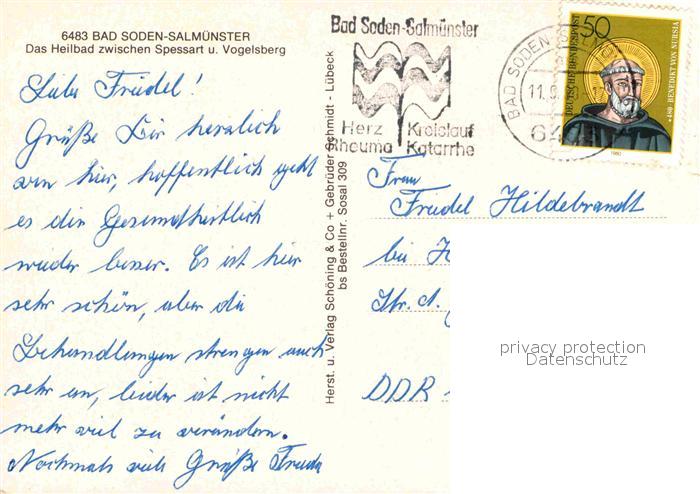 6483 BAD SODEN-SALMÜNSTER
Das Heilbad zwischen Spessart u. Vogelsberg
Liebe Friedel!
Grüße Dir herzlich
von hier, hoffentlich geht
es dir Gesundheitlich
wieder besser. Es ist hier
sehr schön, aber die
Behandlungen strengen auch
sehr an, leider ist nicht
mehr viel zu verändern.
Nochmals viele Grüße Frieda
Herst. u. Verlag Schöning & Co + Gebrüder Schmidt - Lübeck
bs Bestellnr. Sosal 309
Bad Soden-Salmünster
Herz Kreislauf
Rheuma Katarrhe
BAD SODEN
11.
DEUTSCHE BUNDESPOST
50
*480 BENEDIKT VON NURSIA
1980
Frau
Friedel Hildebrandt
bei
Str. d.
DDR
privacy protection
Datenschutz